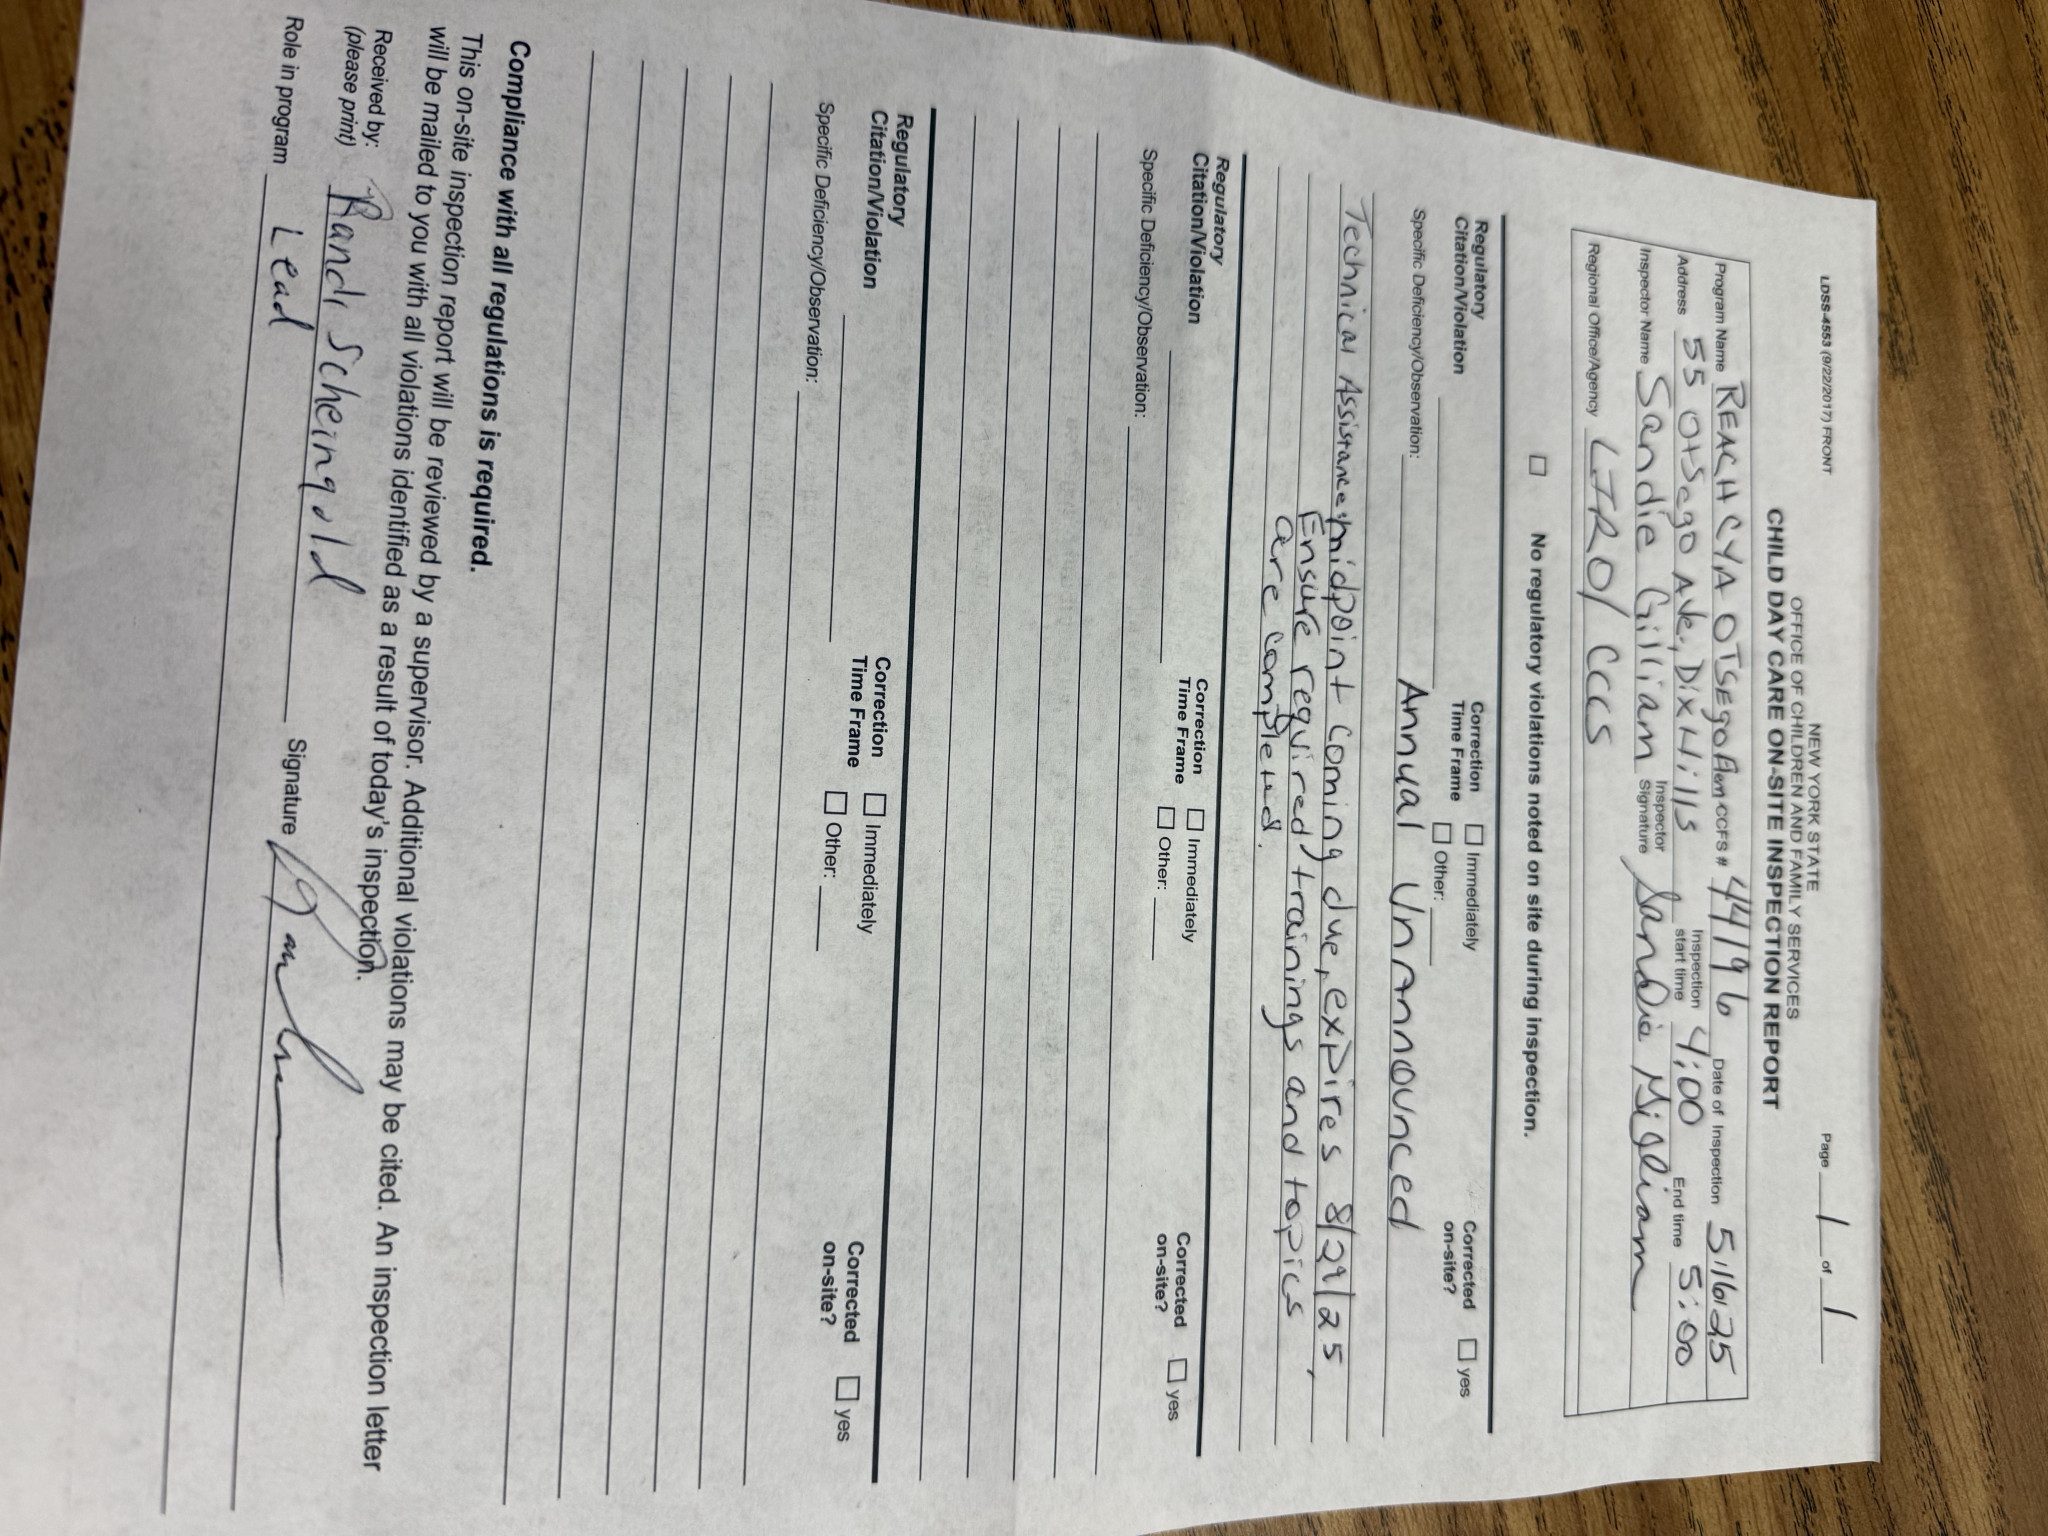 LDSS-4553 (9/22/2017) FRONT
Page 1 of 1
NEW YORK STATE
OFFICE OF CHILDREN AND FAMILY SERVICES
CHILD DAY CARE ON-SITE INSPECTION REPORT
Program Name REACH CYA OTSEgo Elem CCFS# 44196 Date of Inspection 5/16/25
Address 55 Otsego Ave, Dix Hills Inspection start time 4:00 End time 5:00
Inspector Name Sandie Gilliam Inspector Signature Sandie Gilliam
Regional Office/Agency LIRO/ CCCS
☐ No regulatory violations noted on site during inspection.
Regulatory Citation/Violation Correction Time Frame ☐ Immediately ☐ Other: Corrected on-site? ☐ yes
Specific Deficiency/Observation: Annual Unannounced
Technical Assistance: midpoint coming due, expires 8/29/25,
Ensure required trainings and topics
are completed.
Regulatory Citation/Violation Correction Time Frame ☐ Immediately ☐ Other: Corrected on-site? ☐ yes
Specific Deficiency/Observation:
Regulatory Citation/Violation Correction Time Frame ☐ Immediately ☐ Other: Corrected on-site? ☐ yes
Specific Deficiency/Observation:
Compliance with all regulations is required.
This on-site inspection report will be reviewed by a supervisor. Additional violations may be cited. An inspection letter
will be mailed to you with all violations identified as a result of today's inspection.
Received by: (please print) Randi Scheingold Signature
Role in program Lead